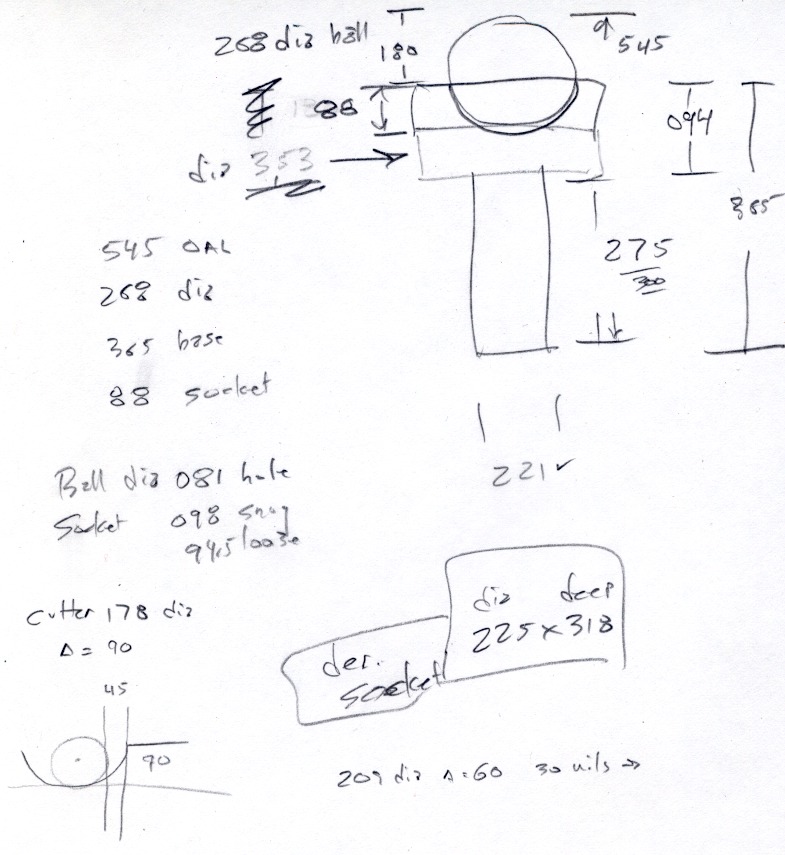 268 dia ball
180
545
88
094
dia 353
365
275
300
545 OAL
268 dia
365 base
88 socket
221
Ball dia 081 hole
Socket 098 snug
94.5 loose
Cutter 178 dia
Δ = 90
45
90
dia deep
225 x 318
der.
socket
209 dia Δ = 60 30 mils →